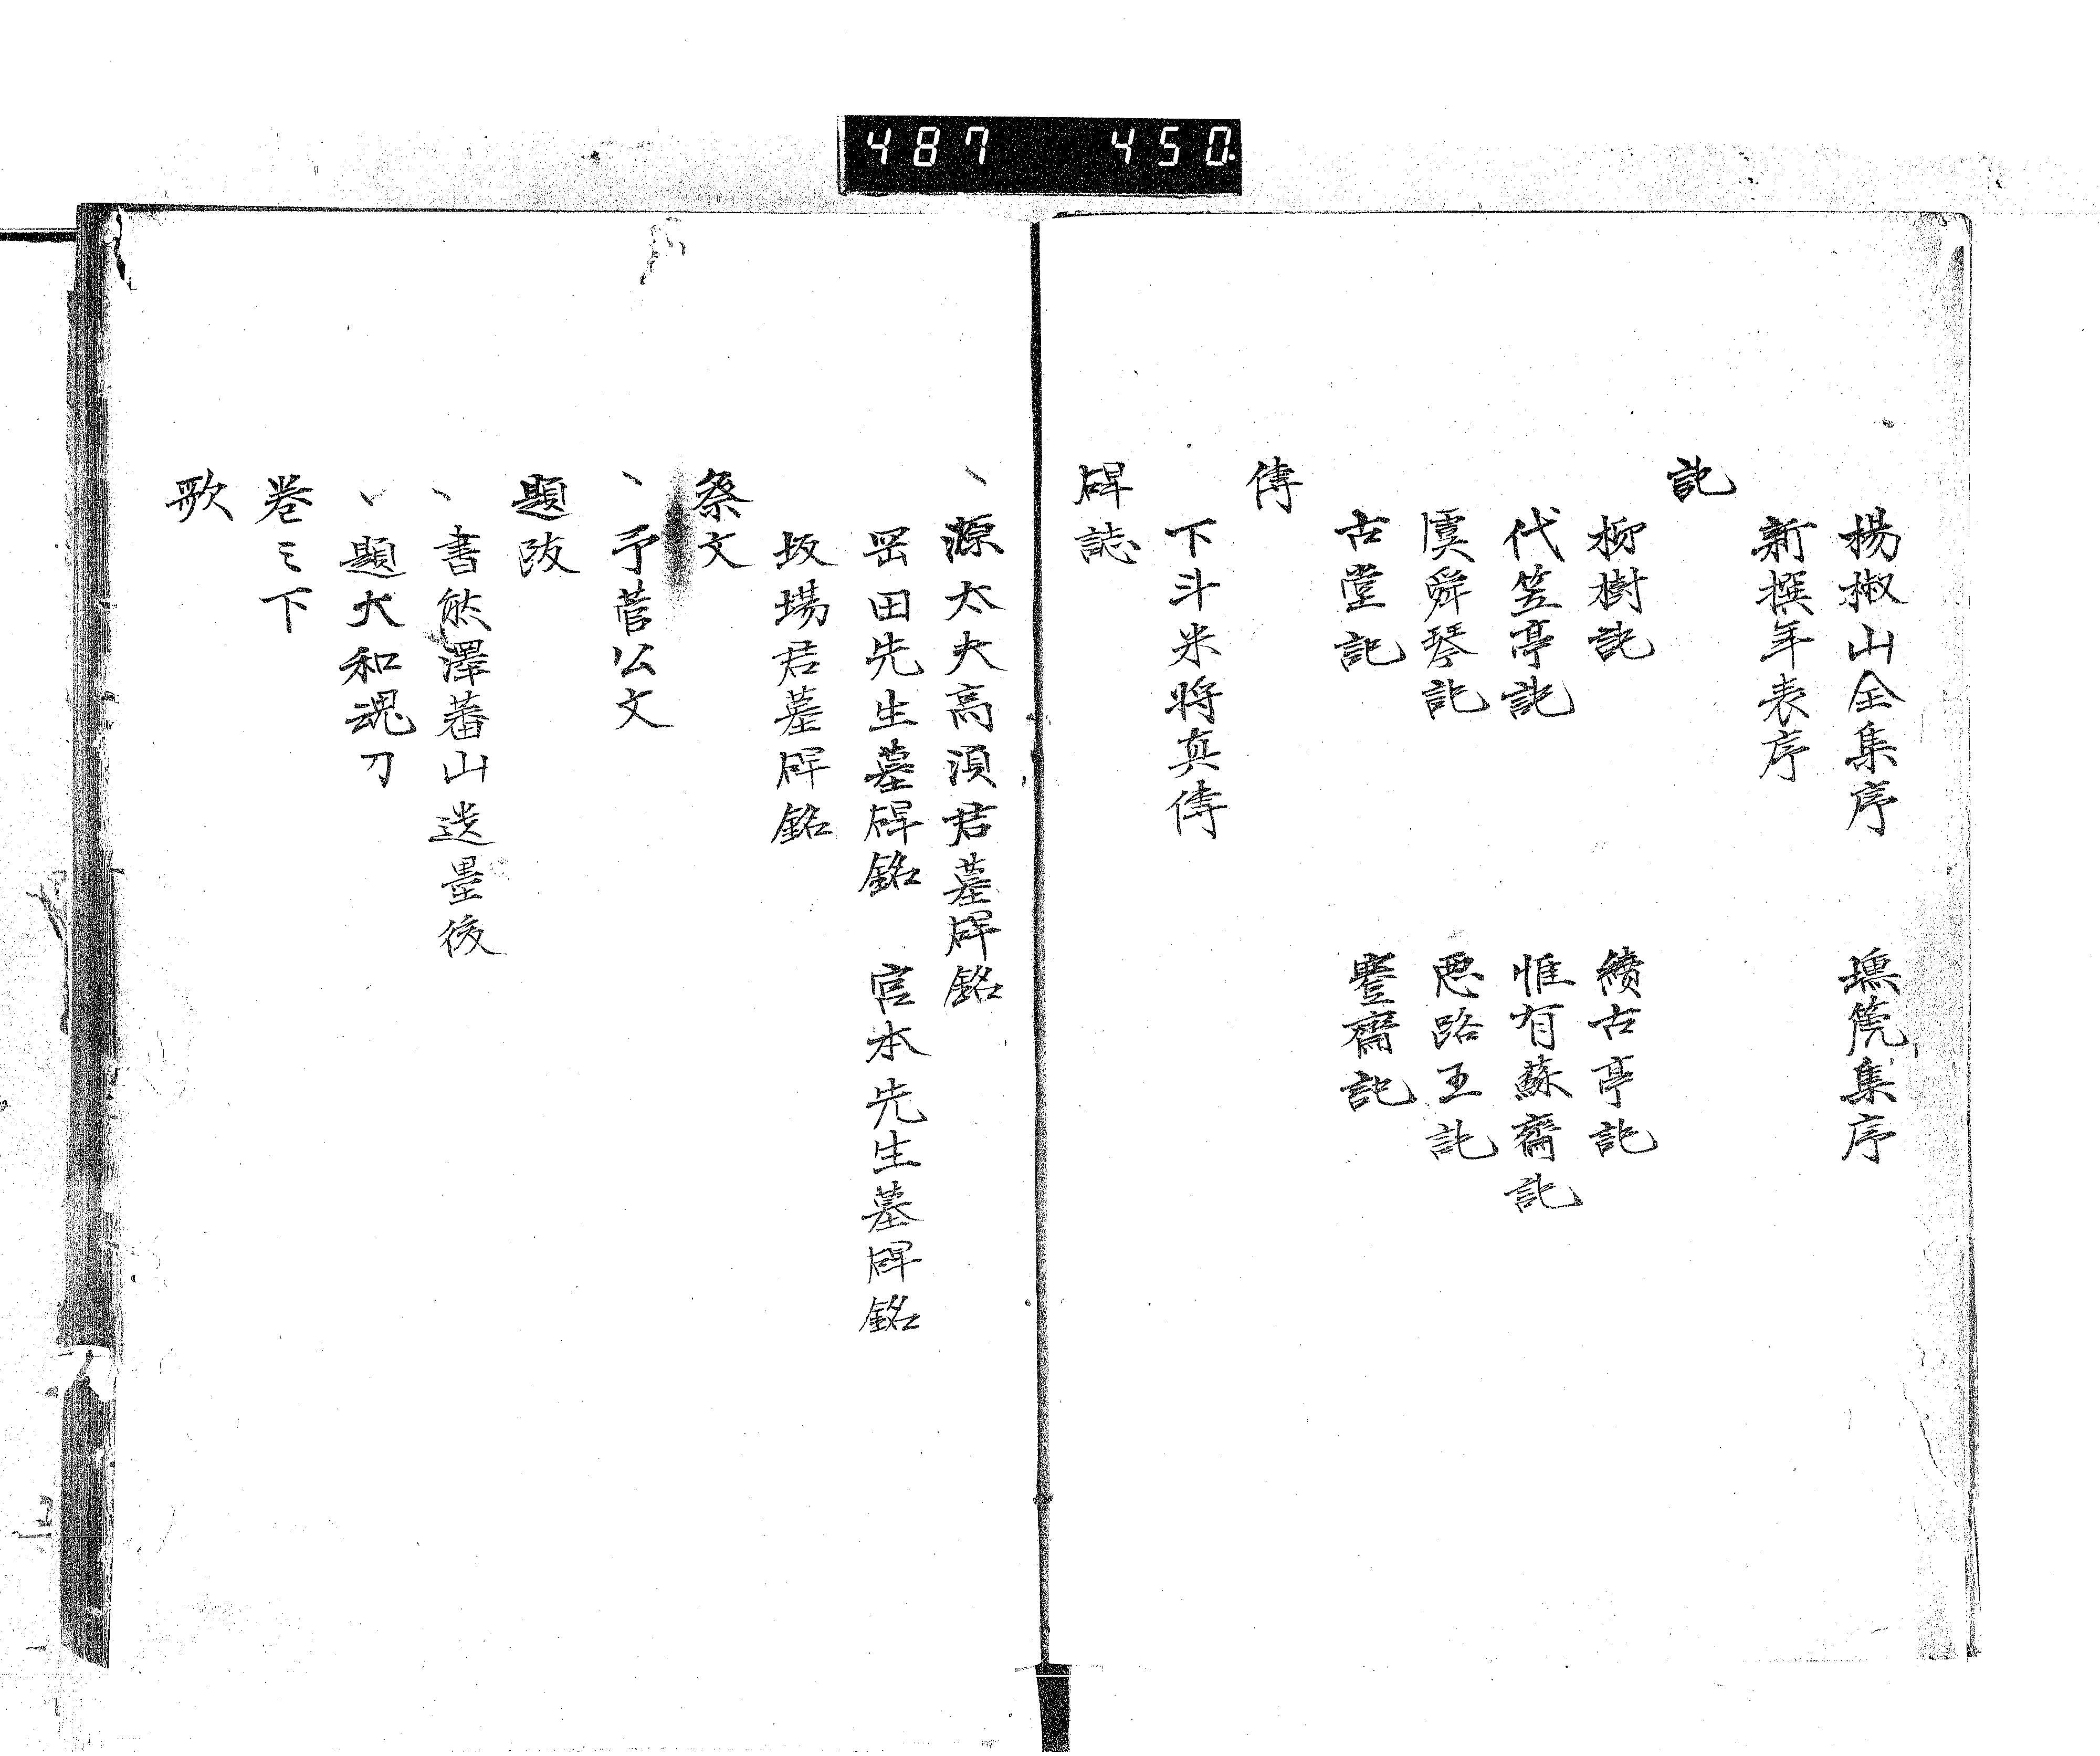 487 450
楊椒山全集序 壎篪集序
新撰年表序
記
柳樹記 續古亭記
代笠亭記 惟有蘇齋記
虞舜琴記 惡路王記
古堂記 壺齋記
傳
下斗米将真傳
碑誌
、源太夫高須君墓碑銘
岡田先生墓碑銘 宮本先生墓碑銘
坂場君墓碑銘
祭文
、予菅公文
題跋
、書熊澤蕃山遺墨後
、題大和魂刀
巻之下
歌